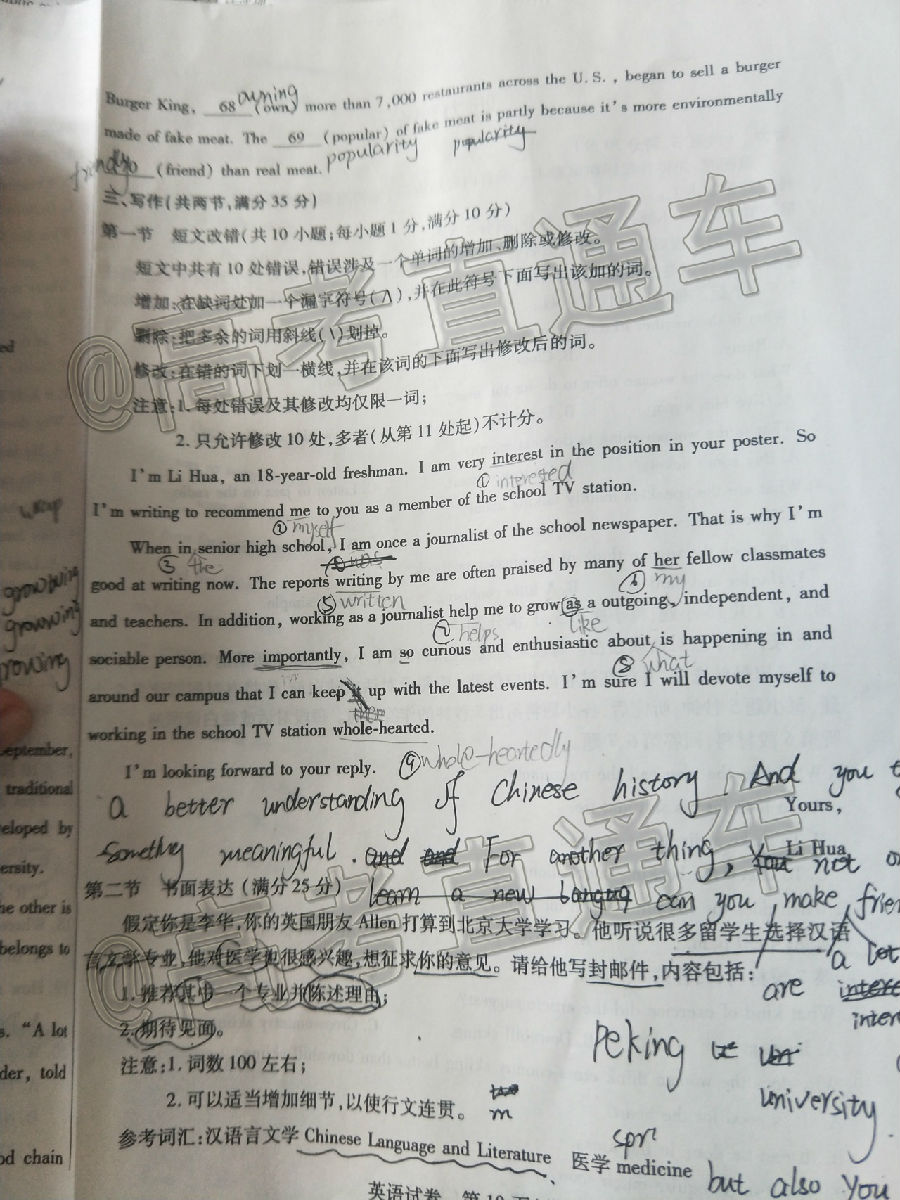 Burger King, 68 (own) more than 7,000 restaurants across the U.S., began to sell a burger
owning
made of fake meat. The 69 (popular) of fake meat is partly because it's more environmentally
popularity popularity
(friend) than real meat.
三、写作(共两节,满分35分)
第一节 短文改错(共10小题;每小题1分,满分10分)
短文中共有10处错误,错误涉及一个单词的增加、删除或修改。
增加:在缺词处加一个漏字符号(∧),并在此符号下面写出该加的词。
删除:把多余的词用斜线(\)划掉。
修改:在错的词下划一横线,并在该词的下面写出修改后的词。
注意:1. 每处错误及其修改均仅限一词;
2. 只允许修改10处,多者(从第11处起)不计分。
@高考直通车
I'm Li Hua, an 18-year-old freshman. I am very interest in the position in your poster. So
① interested
I'm writing to recommend me to you as a member of the school TV station.
① myself
When in senior high school, I am once a journalist of the school newspaper. That is why I'm
③ the was
good at writing now. The reports writing by me are often praised by many of her fellow classmates
⑤ written ⑥ my
and teachers. In addition, working as a journalist help me to grow as a outgoing, independent, and
⑦ helps like
sociable person. More importantly, I am so curious and enthusiastic about is happening in and
⑧ what
around our campus that I can keep it up with the latest events. I'm sure I will devote myself to
working in the school TV station whole-hearted.
⑨ whole-heartedly
I'm looking forward to your reply.
Yours,
Li Hua
a better understanding of Chinese history. And you
something meaningful. and and For another thing, You not
learn a new can you make
第二节 书面表达(满分25分)
假定你是李华,你的英国朋友Allen打算到北京大学学习。他听说很多留学生选择汉语
言文学专业,他对医学也很感兴趣,想征求你的意见。请给他写封邮件,内容包括:
a lot
1. 推荐其中一个专业并陈述理由;
are
2. 期待见面。
Peking
注意:1. 词数100左右;
university
2. 可以适当增加细节,以使行文连贯。
m
参考词汇:汉语言文学 Chinese Language and Literature 医学 medicine
but also you
高考直通车
英语试卷
wrap
growing
growing
growing
ed
September,
traditional
veloped by
ersity.
he other is
belongs to
s. "A lot
der, told
od chain